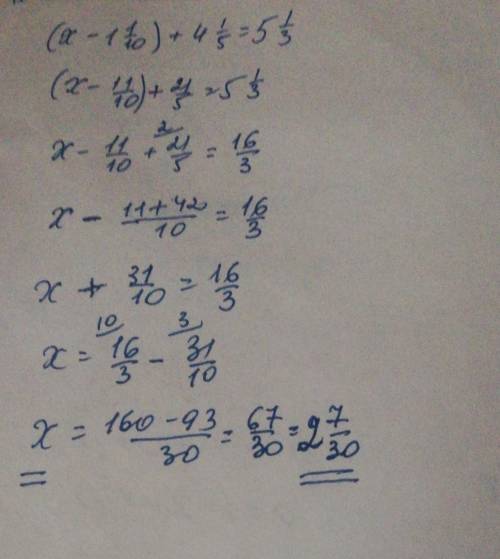 (x - 1 1/10) + 4 1/5 = 5 1/3
(x - 11/10) + 21/5 = 5 1/3
x - 11/10 + 21/5 (2) = 16/3
x - (11+42)/10 = 16/3
x + 31/10 = 16/3
x = 16/3 (10) - 31/10 (3)
x = (160-93)/30 = 67/30 = 2 7/30